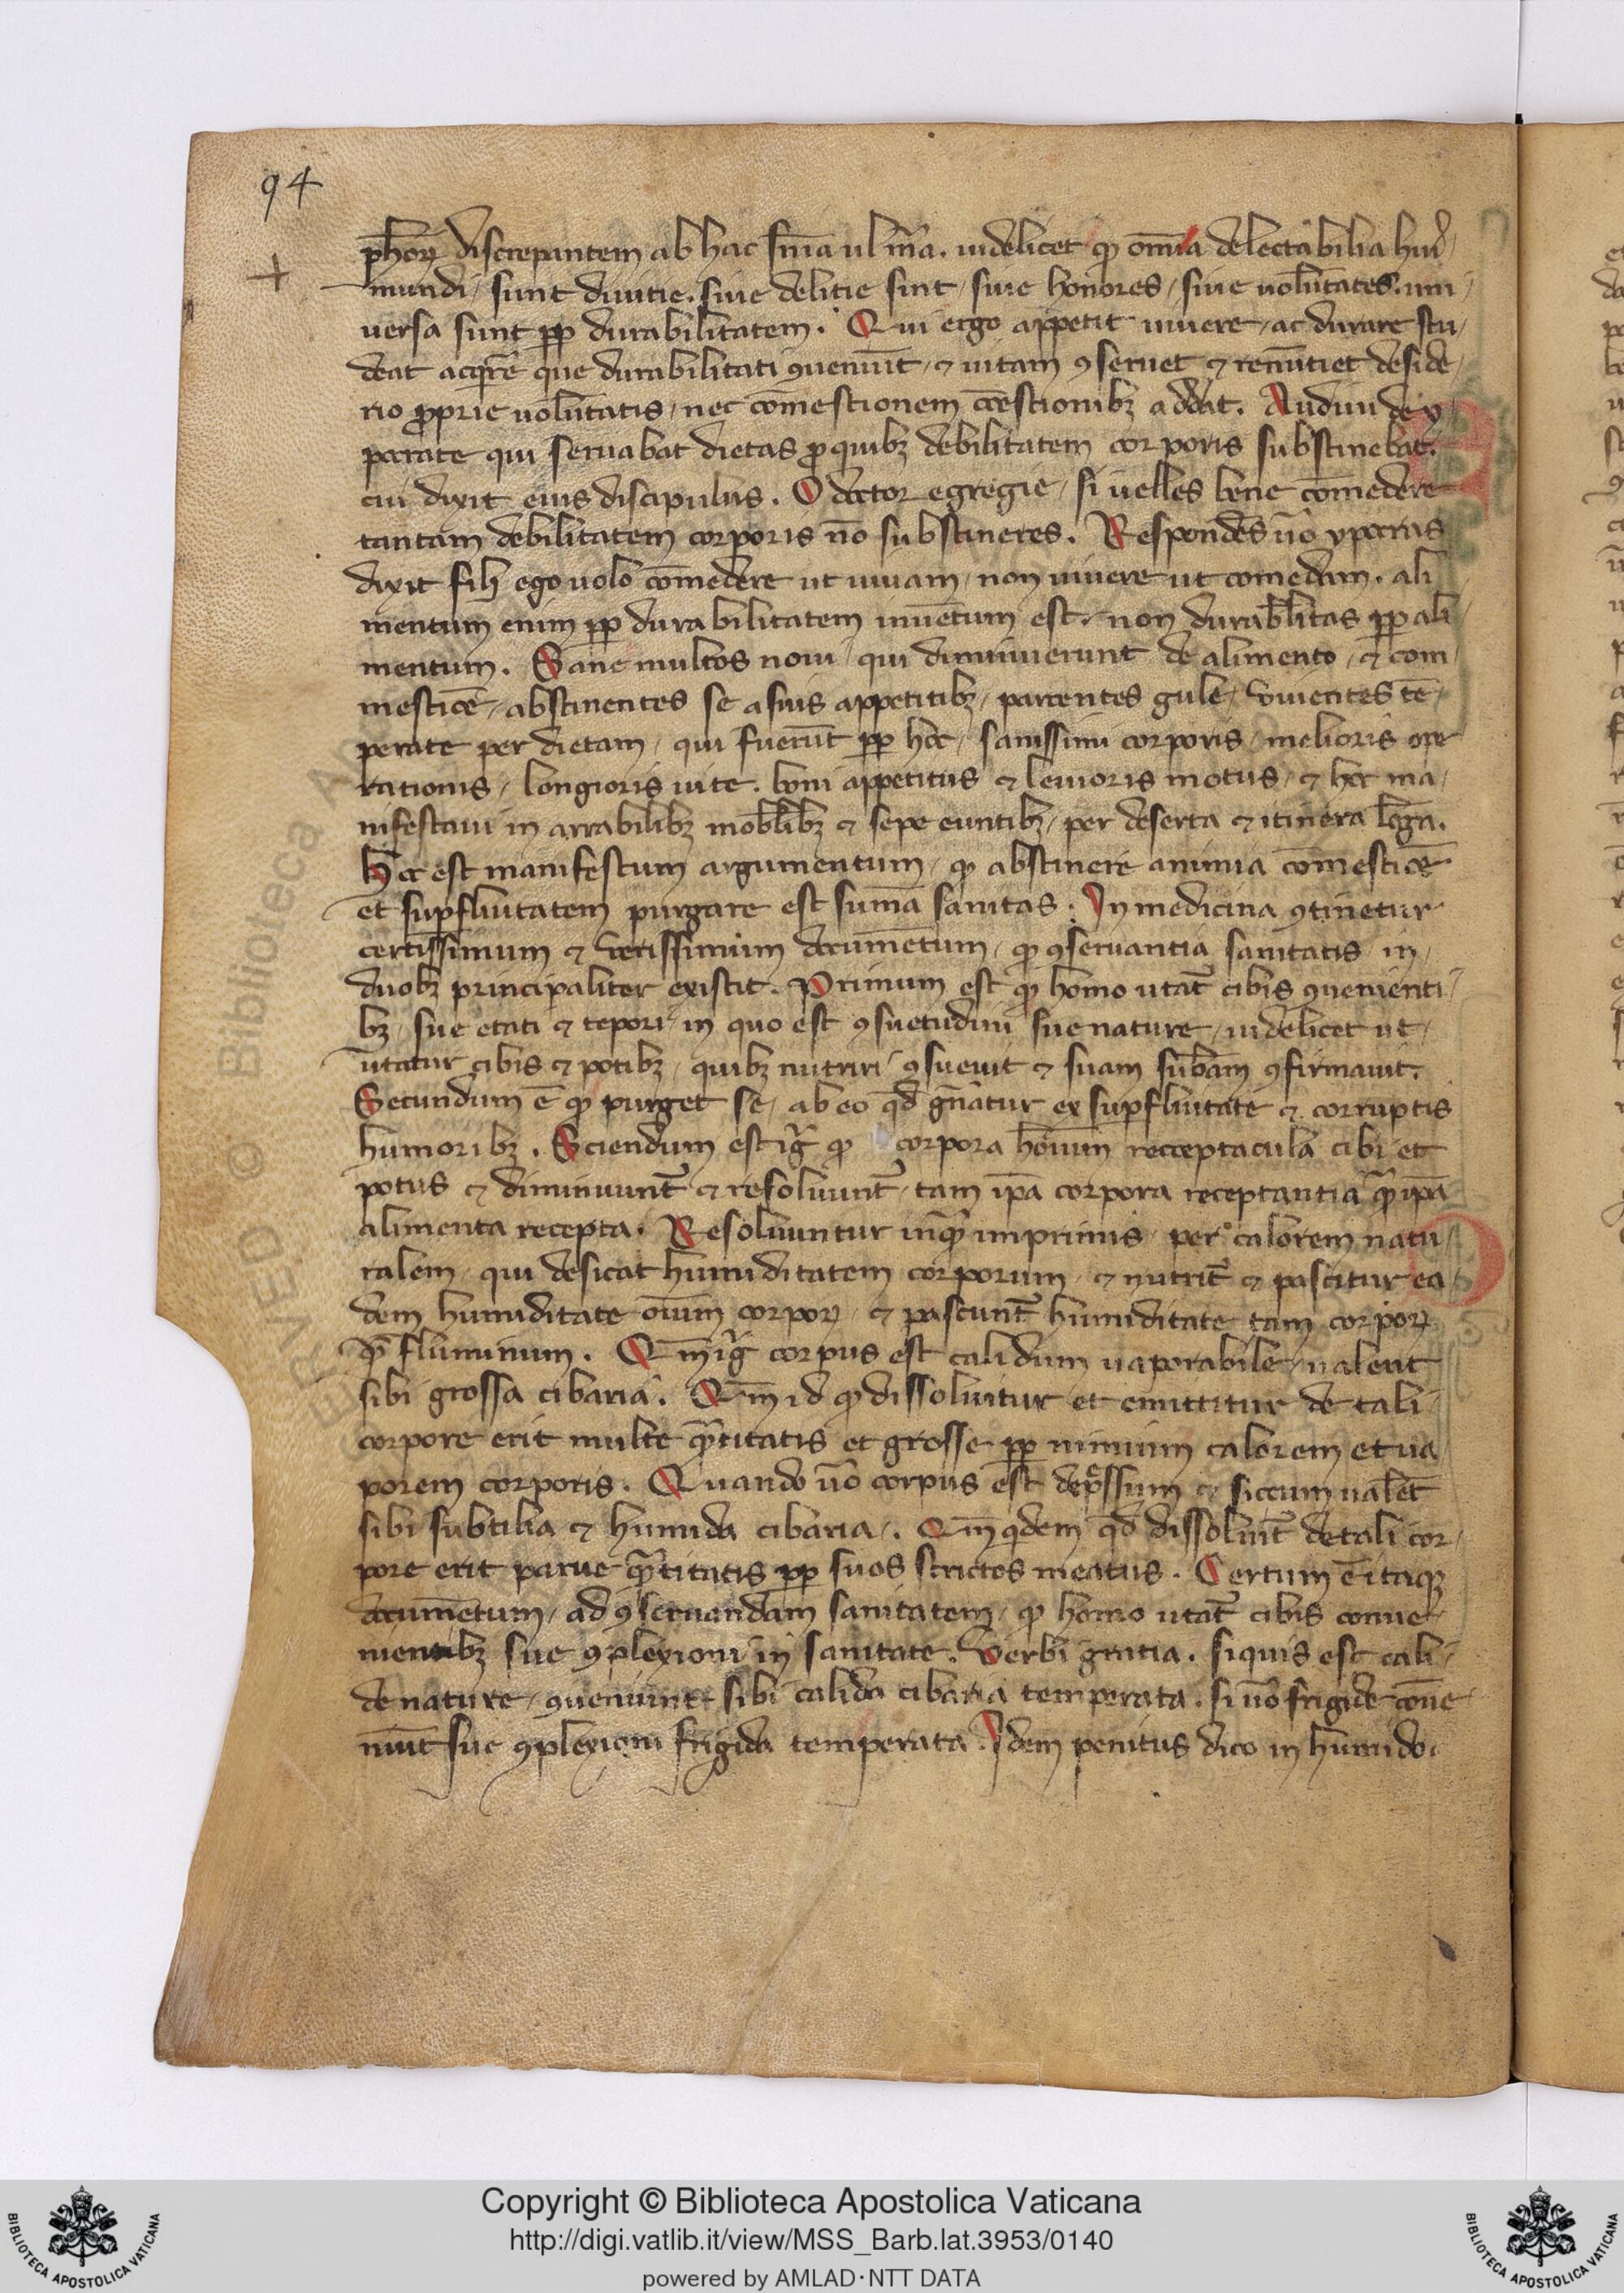 94
ph̄oꝝ discrepantem ab hac sn̄ia ul m̄a. uidelicet ꝙ om̄ia delectabilia hui᷒
+
mundi / sunt diuitie. siue delitie sint / siue honores / siue uolūtates. uni/
uersa sunt ꝓp durabilitatem. Qui ergo appetit uiuere / ac durare stu/
deat acq̇rē que durabilitati ꝯueniūt / ⁊ uitam ꝯseruet ⁊ renūtiet deside/
rio ꝓprie uolūtatis / nec cōmestionem cōestionibꝫ addat. Audiui de y/
pocrate qui seruabat dietas ꝓ quibꝫ debilitatem corporis substinebat.
cui dixit eius discipulus. O doctor egregie / si uelles bene cōmedere
tantam debilitatem corporis nō substineres. Respondēs ūo ypocras
dixit fili ego uolo cōmedere ut uiuam / non uiuere ut comedam. ali/
mentum enim ꝓp durabilitatem inuētum est. non durabl̄itas ꝓp ali/
mentum. Sane multos noui / qui diminuerunt de alimento / ⁊ com/
mesticē / abstinentes se a suis appetitibꝫ / parcentes gule / uiuentes tē/
perate per dietam / qui fuerūt ꝓp hoc / sanissimi corporis / melioris ope
rationis / longioris uite. boni appetitus ⁊ leuioris motus / ⁊ hoc ma/
nifestaui in arrabilibꝫ mobl̄ibꝫ ⁊ sepe euntibꝫ / per deserta ⁊ itinera lōga.
Hoc est manifestum argumentum / ꝙ abstinere a nimia cōmesticē
et suꝑfluitatem purgare est sum̄a sanitas. In medicina ꝯtinetur
certissimum ⁊ uerissimum documētum / ꝙ ꝯseruantia sanitatis in /
duobꝫ principaliter existit. Primum est ꝙ homo utat᷑ cibis ꝯuenienti/
bꝫ / sue etati ⁊ tēpori in quo est ꝯsuetudini sue nature / uidelicet ut /
utatur cibis ⁊ potibꝫ / quibꝫ nutriri ꝯsueuit ⁊ suam subāam ꝯfirmauit.
Secundum ē ꝙ purget se / ab eo qd̄ gn̄atur ex suꝑfluitate ⁊ corruptis
humoribꝫ. Sciendum est ig̊ ꝙ corpora hōium receptacula cibi et
potus ⁊ diminuunt᷑ ⁊ resoluunt᷑ / tam ip̄a corpora receptantia q̄ ip̄a
alimenta recepta. Resoluuntur inq̄ imprimis / per calorem natu/
ralem / qui desicat humiditatem corporum / ⁊ nutrit᷑ ⁊ pascitur ea/
dem humiditate oīum corpoꝝ / ⁊ pascunt᷑ humiditate tam corpoꝝ
q̄ fluminum. Qm̄ ig̊ corpus est calidum uaporabile / ualent
sibi grossa cibaria. Qm̄ id ꝙ dissoluitur et emittitur de tali /
corpore erit multe q̄titatis et grosse ꝓp nimium calorem et ua/
porem corporis. Quando ūo corpus est dep̄ssum ⁊ siccum ualēt
sibi subtilia ⁊ humida cibaria /. Qm̄ qdem qd̄ dissoluit᷑ de tali cor/
pore erit parue q̄titatis ꝓp suos strictos meatus. Certum ē itaqꝫ
documētum / ad ꝯseruandam sanitatem / ꝙ homo utat᷑ cibis conue/
nientibꝫ sue ꝯplexioni in sanitate. Verbi gratia. siquis est cali/
de nature / ꝯueniunt sibi calida cibaria temperata. si ūo frigide cōue/
niūt sue ꝯplexioni frigida temperata. Idem penitus dico in humido.
© Biblioteca A
Copyright © Biblioteca Apostolica Vaticana
http://digi.vatlib.it/view/MSS_Barb.lat.3953/0140
powered by AMLAD·NTT DATA
BIBLIOTECA APOSTOLICA VATICANA
BIBLIOTECA APOSTOLICA VATICANA